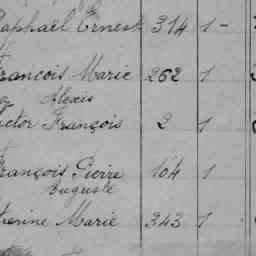 Raphaël Ernest 314 1 -
François Marie 262 1
Alexis
Victor François 2 1
François Pierre 104 1
Auguste
herine Marie 343 1